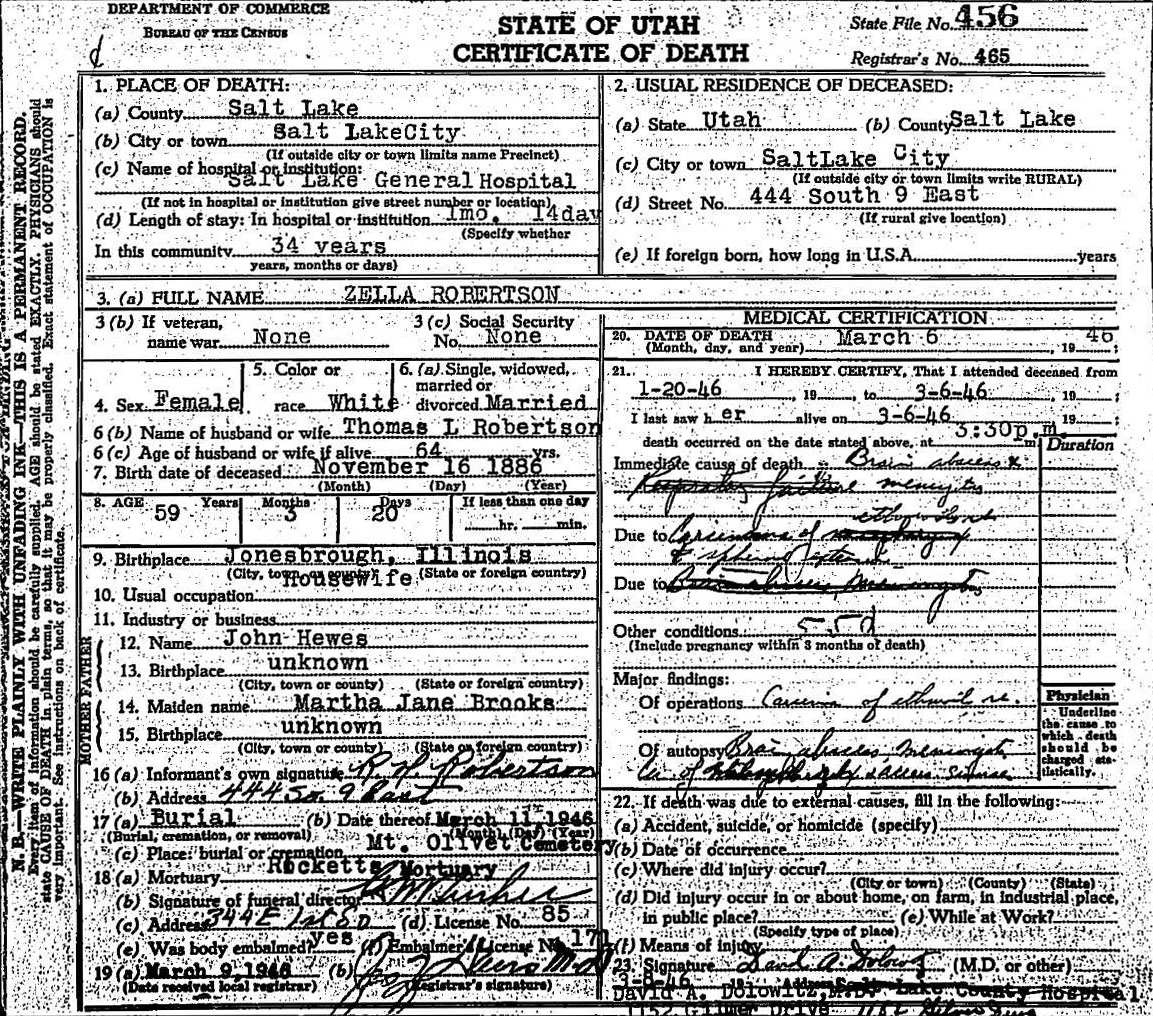 DEPARTMENT OF COMMERCE
BUREAU OF THE CENSUS
STATE OF UTAH
CERTIFICATE OF DEATH
State File No. 456
Registrar's No. 465
N. B.—WRITE PLAINLY WITH UNFADING INK—THIS IS A PERMANENT RECORD.
Every item of information should be carefully supplied. AGE should be stated EXACTLY. PHYSICIANS should
state CAUSE OF DEATH in plain terms, so that it may be properly classified. Exact statement of OCCUPATION is
very important. See instructions on back of certificate.
1. PLACE OF DEATH:
(a) County Salt Lake
(b) City or town Salt LakeCity
(If outside city or town limits name Precinct)
(c) Name of hospital or institution:
Salt Lake General Hospital
(If not in hospital or institution give street number or location)
(d) Length of stay: In hospital or institution 1mo. 14day
(Specify whether
In this community 34 years
years, months or days)
2. USUAL RESIDENCE OF DECEASED:
(a) State Utah (b) County Salt Lake
(c) City or town SaltLake City
(If outside city or town limits write RURAL)
(d) Street No. 444 South 9 East
(If rural give location)
(e) If foreign born, how long in U.S.A. years
3. (a) FULL NAME ZELLA ROBERTSON
3 (b) If veteran, name war None
3 (c) Social Security No. None
4. Sex Female
5. Color or race White
6. (a) Single, widowed, married or divorced Married
6 (b) Name of husband or wife Thomas L Robertson
6 (c) Age of husband or wife if alive 64 yrs.
7. Birth date of deceased November 16 1886
(Month) (Day) (Year)
8. AGE Years Months Days If less than one day
59 3 20 hr. min.
9. Birthplace Jonesbrough, Illinois
(City, town or county) (State or foreign country)
Housewife
10. Usual occupation
11. Industry or business
FATHER
12. Name John Hewes
13. Birthplace unknown
(City, town or county) (State or foreign country)
MOTHER
14. Maiden name Martha Jane Brooks
15. Birthplace unknown
(City, town or county) (State or foreign country)
16 (a) Informant's own signature R. H. Robertson
(b) Address 444 So. 9 East
17 (a) Burial (b) Date thereof March 11, 1946
(Burial, cremation, or removal) (Month) (Day) (Year)
(c) Place: burial or cremation Mt. Olivet Cemetery
18 (a) Mortuary Rocketts Mortuary
(b) Signature of funeral director
(c) Address 344 E 1st SO (d) License No. 85
(e) Was body embalmed? yes (f) Embalmer's License No. 171
19 (a) March 9, 1946 (b)
(Date received local registrar) (Registrar's signature)
MEDICAL CERTIFICATION
20. DATE OF DEATH March 6, 19 46
(Month, day, and year)
21. I HEREBY CERTIFY, That I attended deceased from
1-20-46, 19 , to 3-6-46, 19 ;
I last saw h er alive on 3-6-46 19 ;
death occurred on the date stated above, at 3:30p.m. m.
Duration
Immediate cause of death Brain abscess &
Respiratory failure meningitis
ethmoid
Due to Carcinoma of
Due to Brain abscess, Meningitis
Other conditions 55d
(Include pregnancy within 3 months of death)
Major findings:
Of operations Carcinoma of ethmoid
Of autopsy Brain abscess Meningitis
Ca. of
Physician
Underline
the cause to
which death
should be
charged sta-
tistically.
22. If death was due to external causes, fill in the following:
(a) Accident, suicide, or homicide (specify)
(b) Date of occurrence
(c) Where did injury occur?
(City or town) (County) (State)
(d) Did injury occur in or about home, on farm, in industrial place,
in public place? (e) While at Work?
(Specify type of place)
(f) Means of injury
23. Signature David A. Dolowitz (M.D. or other)
David A. Dolowitz, M.D. Lake County Hospital
1152 Gilmer Drive